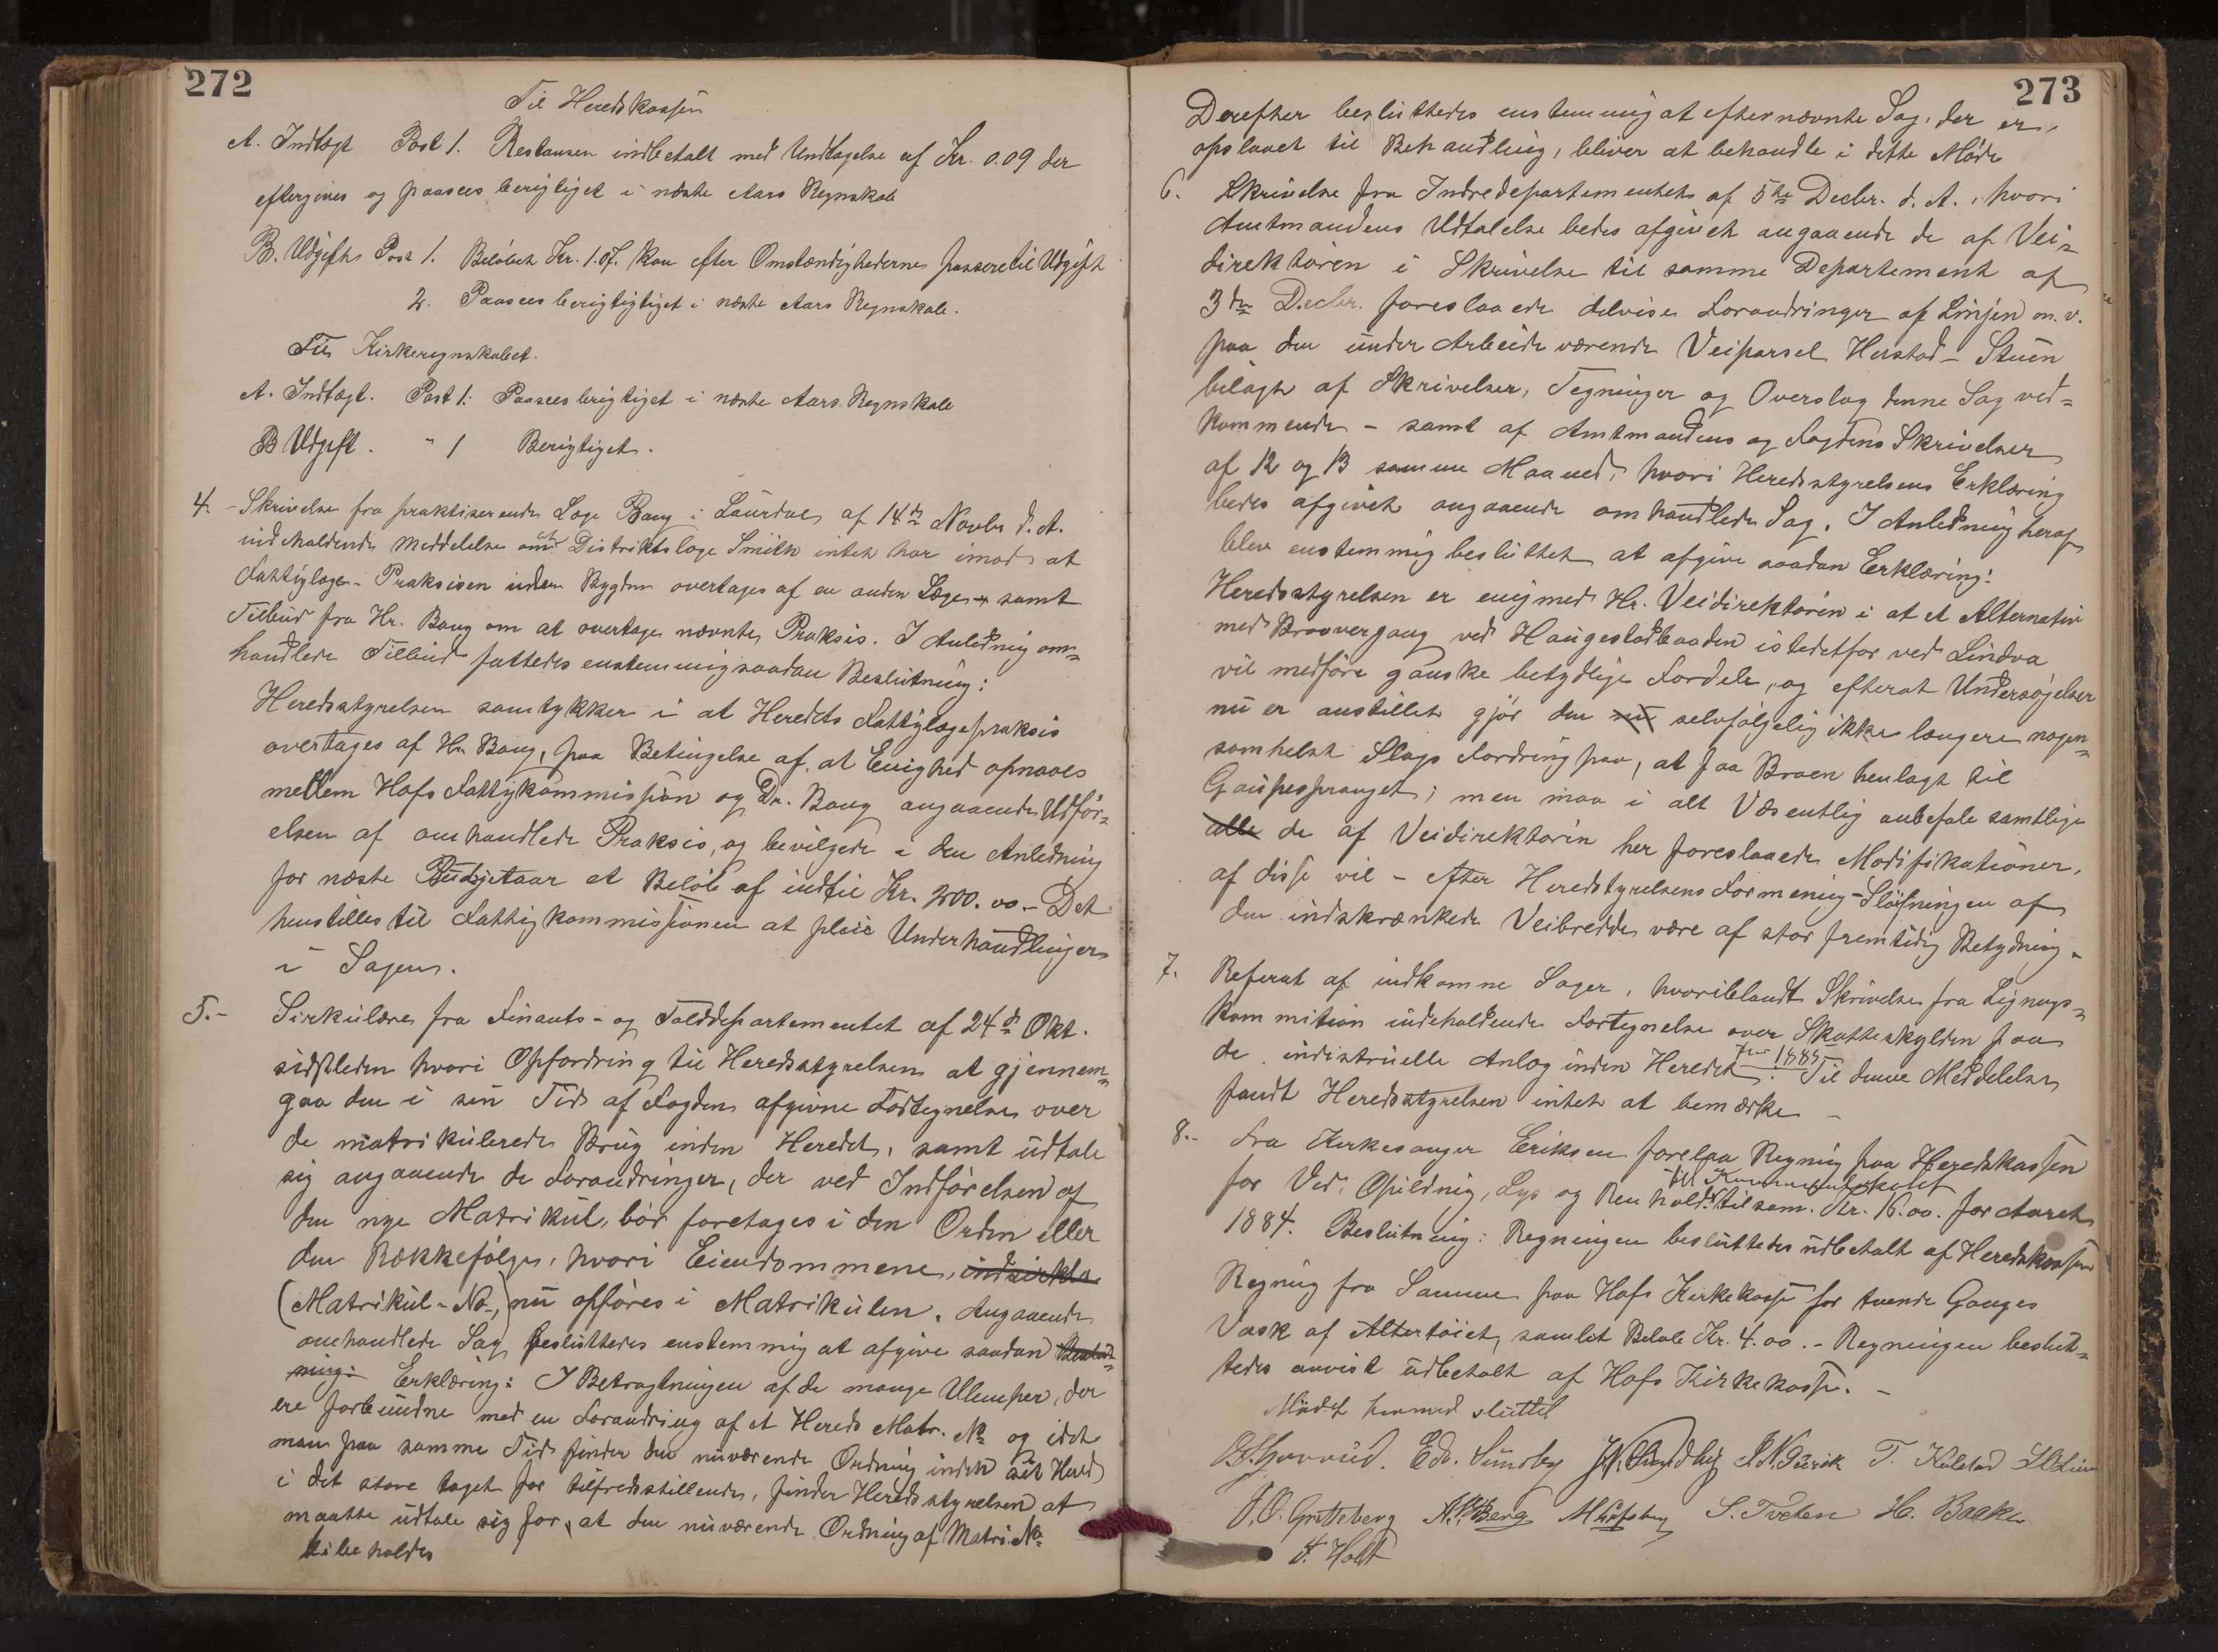 272
Til Heredskassen
A. Indtægt Post 1. Restansen indbetalt med Undtagelse af Kr. 0.09 der
eftergives og paasees berigtiget i næste Aars Regnskab
B. Udgift Post 1. Beløbet Kr. 1.07. kan efter Omstændighederne passere til Udgift
2. Paasees berigtigtiget i næste Aars Regnskab.
Til Kirkeregnskabet.
A. Indtægt. Post 1: Paasees berigtiget i næste Aars Regnskab
B Udgift. " 1 Berigtiget.
4. - Skrivelse fra praktiserende Læge Bang i Laurdal af 14de Novbr d. A.
indeholdende Meddelelse om at Distriktslæge Smith intet har imod at
Fattiglæge-Praksisen inden Bygden overtages af en anden Læge samt
Tilbud fra Hr. Bang om at overtage nævnte Praksis. I Anledning om-
handlede Tilbud fattedes enstemmig saadan Beslutning:
Heredsstyrelsen samtykker i at Heredets Fattiglægepraksis
overtages af Hr. Bang, paa Betingelse af, at Enighed opnaaes
mellem Hofs Fattigkommission og Dr. Bang angaaende Udfør-
elsen af omhandlede Praksis, og bevilgede i den Anledning
for næste Budsjetaar et Beløb af indtil Kr. 200.00 - Det
henstilles til Fattigkommissionen at pleie Underhandlinger
i Sagen.
5. - Sirkulære fra Finants- og Tolddepartementet af 24de Okt.
sidstleden hvori Opfordring til Heredsstyrelsen at gjennem-
gaa den i sin Tid af Fogden afgivne Fortegnelse over
de matrikulerede Brug inden Heredet, samt udtale
sig angaaende de Forandringer, der ved Indførelsen af
den nye Matrikul, bør foretages i den Orden eller
den Rækkefølge, hvori Eiendommene,
(Matrikul-No,) nu opføres i Matrikulen. Angaaende
omhandlede Sag besluttedes enstemmig at afgive saadan Beslut-
ning: Erklæring: I Betragtningen af de mange Ulemper, der
ere forbundne med en Forandring af et Hereds Matr. No og idet
man paa samme Tid finder den nuværende Ordning inden sit Hered
i det store taget for tilfredsstillende, finder Heredsstyrelsen at
maatte udtale sig for, at den nuværende Ordning af Matri. No
bibeholdes
273
Derefter besluttedes enstemmig at efternævnte Sag, der er
opslaaet til Behandling, bliver at behandle i dette Møde
6. Skrivelse fra Indredepartementet af 5te Decbr. d. A., hvori
Amtmandens Udtalelse bedes afgivet angaaende de af Vei-
direktøren i Skrivelse til samme Departement af
3die Decbr. foreslaaede delvise Forandringer af Linjen m. v.
paa den under Arbeide værende Veiparsel Herstad - Stuen
bilagt af Skrivelser, Tegninger og Overslag denne Sag ved-
kommende - samt af Amtmandens og Fogdens Skrivelser
af 12 og 13 samme Maaned, hvori Heredsstyrelsens Erklæring
bedes afgivet angaaende omhandlede Sag. I Anledning heraf
blev enstemmig besluttet at afgive saadan Erklæring:
Heredsstyrelsen er enig med Hr. Veidirektøren i at et Alternativ
med Broovergang ved Haugestadbaaden istedetfor ved Lindva
vil medføre ganske betydlige Fordele, og efterat Undersøgelser
nu er anstillet gjør den nu selvfølgelig ikke længere nogen-
somhelst Slags Fordring paa, at faa Broen henlagt til
Gaupesprangets; men maa i alt Væsentlig anbefale samtlige
alle de af Veidirektøren her foreslaaede Modifikationer,
af disse vil - efter Heredstyrelsens Formening - Sløifningen af
den indskrænkede Veibredde være af stor fremtidig Betydning.
7. Referat af indkomne Sager, hvoriblandt Skrivelse fra Lignings-
kommition indeholdende Fortegnelse over Skatteskylden paa
de industrielle Anlæg inden Heredet for 1885. Til denne Meddelelse
fandt Heredsstyrelsen intet at bemærke -
8. - Fra Kirkesanger Eriksen forelaa Regning paa Heredskassen
for Ved, Opildning, Lys og Renhold til Kommunelokalet tilsam. Kr. 16.00. for Aaret
1884. Beslutning: Regningen besluttedes udbetalt af Heredskassen
Regning fra Samme paa Hofs Kirkekasse for tvende Ganges
Vask af Altertøiet, samlet Beløb Kr. 4.00. - Regningen beslut-
tedes anvist udbetalt af Hofs Kirkekasse. -
Mødet hermed sluttet
Edv. Sundby T. Kolstad
O. Gretteberg Berg S. Tveten H. Bakke
F. Holt